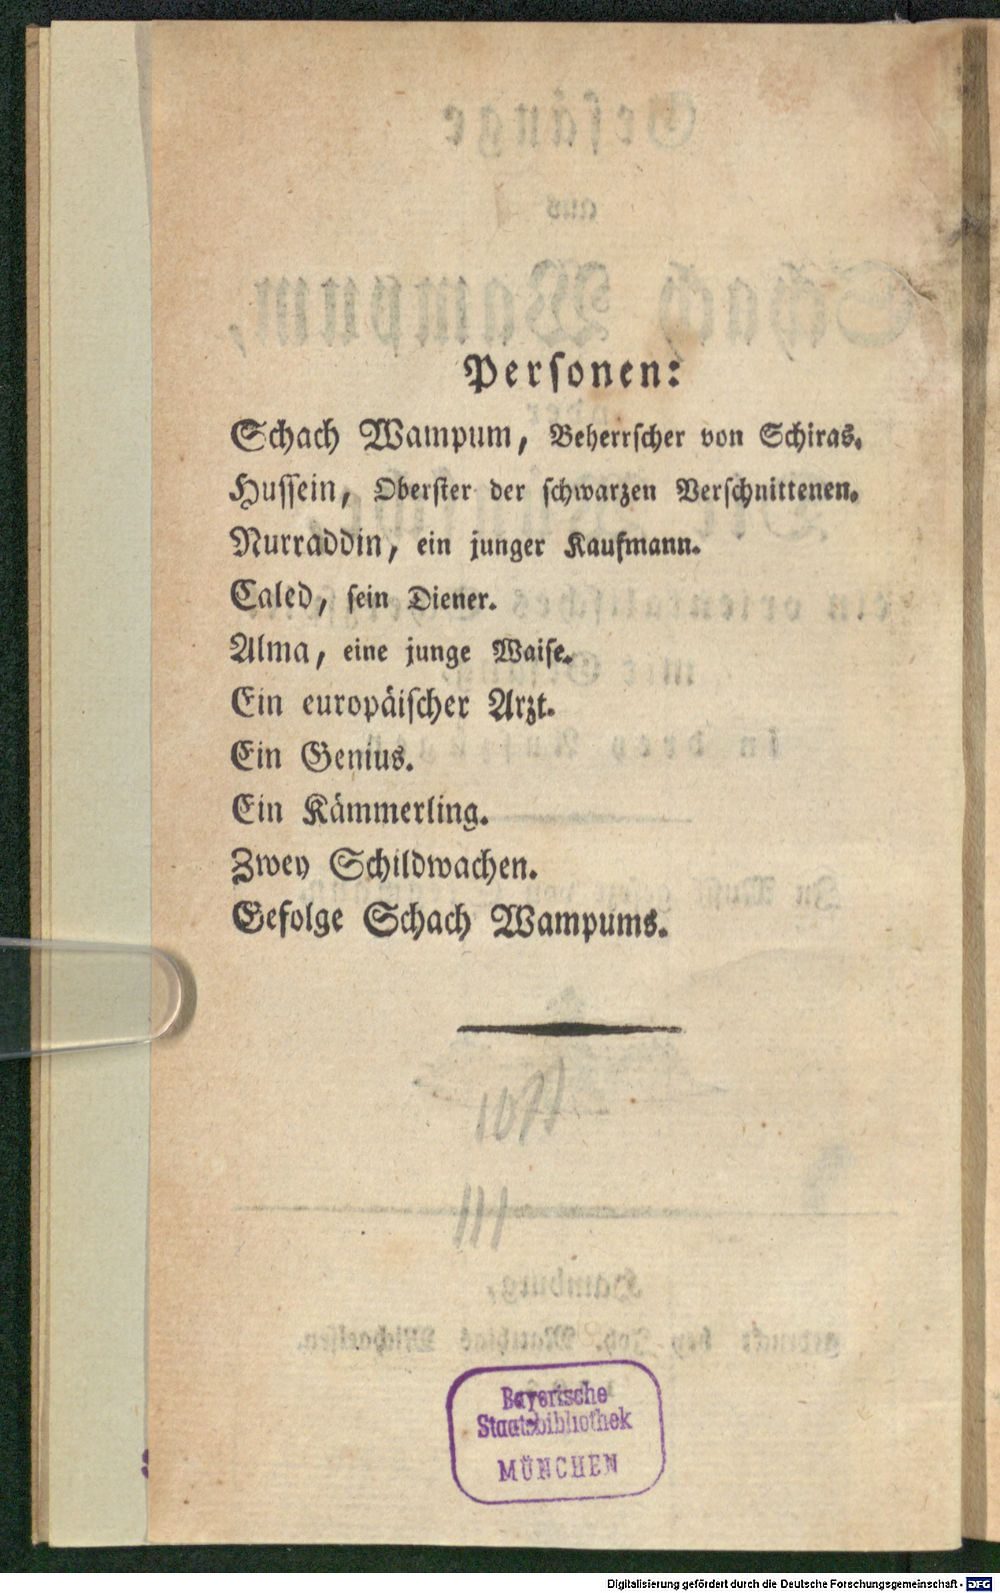 Personen:
Schach Wampum, Beherrscher von Schiras.
Hussein, Oberster der schwarzen Verschnittenen.
Nurraddin, ein junger Kaufmann.
Caled, sein Diener.
Alma, eine junge Waise.
Ein europäischer Arzt.
Ein Genius.
Ein Kämmerling.
Zwey Schildwachen.
Gefolge Schach Wampums.
Bayerische
Staatsbibliothek
MÜNCHEN
Digitalisierung gefördert durch die Deutsche Forschungsgemeinschaft - DFG